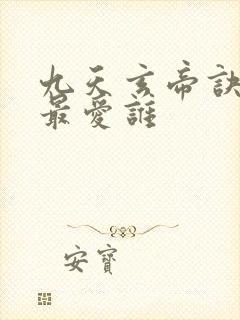 九天玄帝訣
最愛誰
安寶